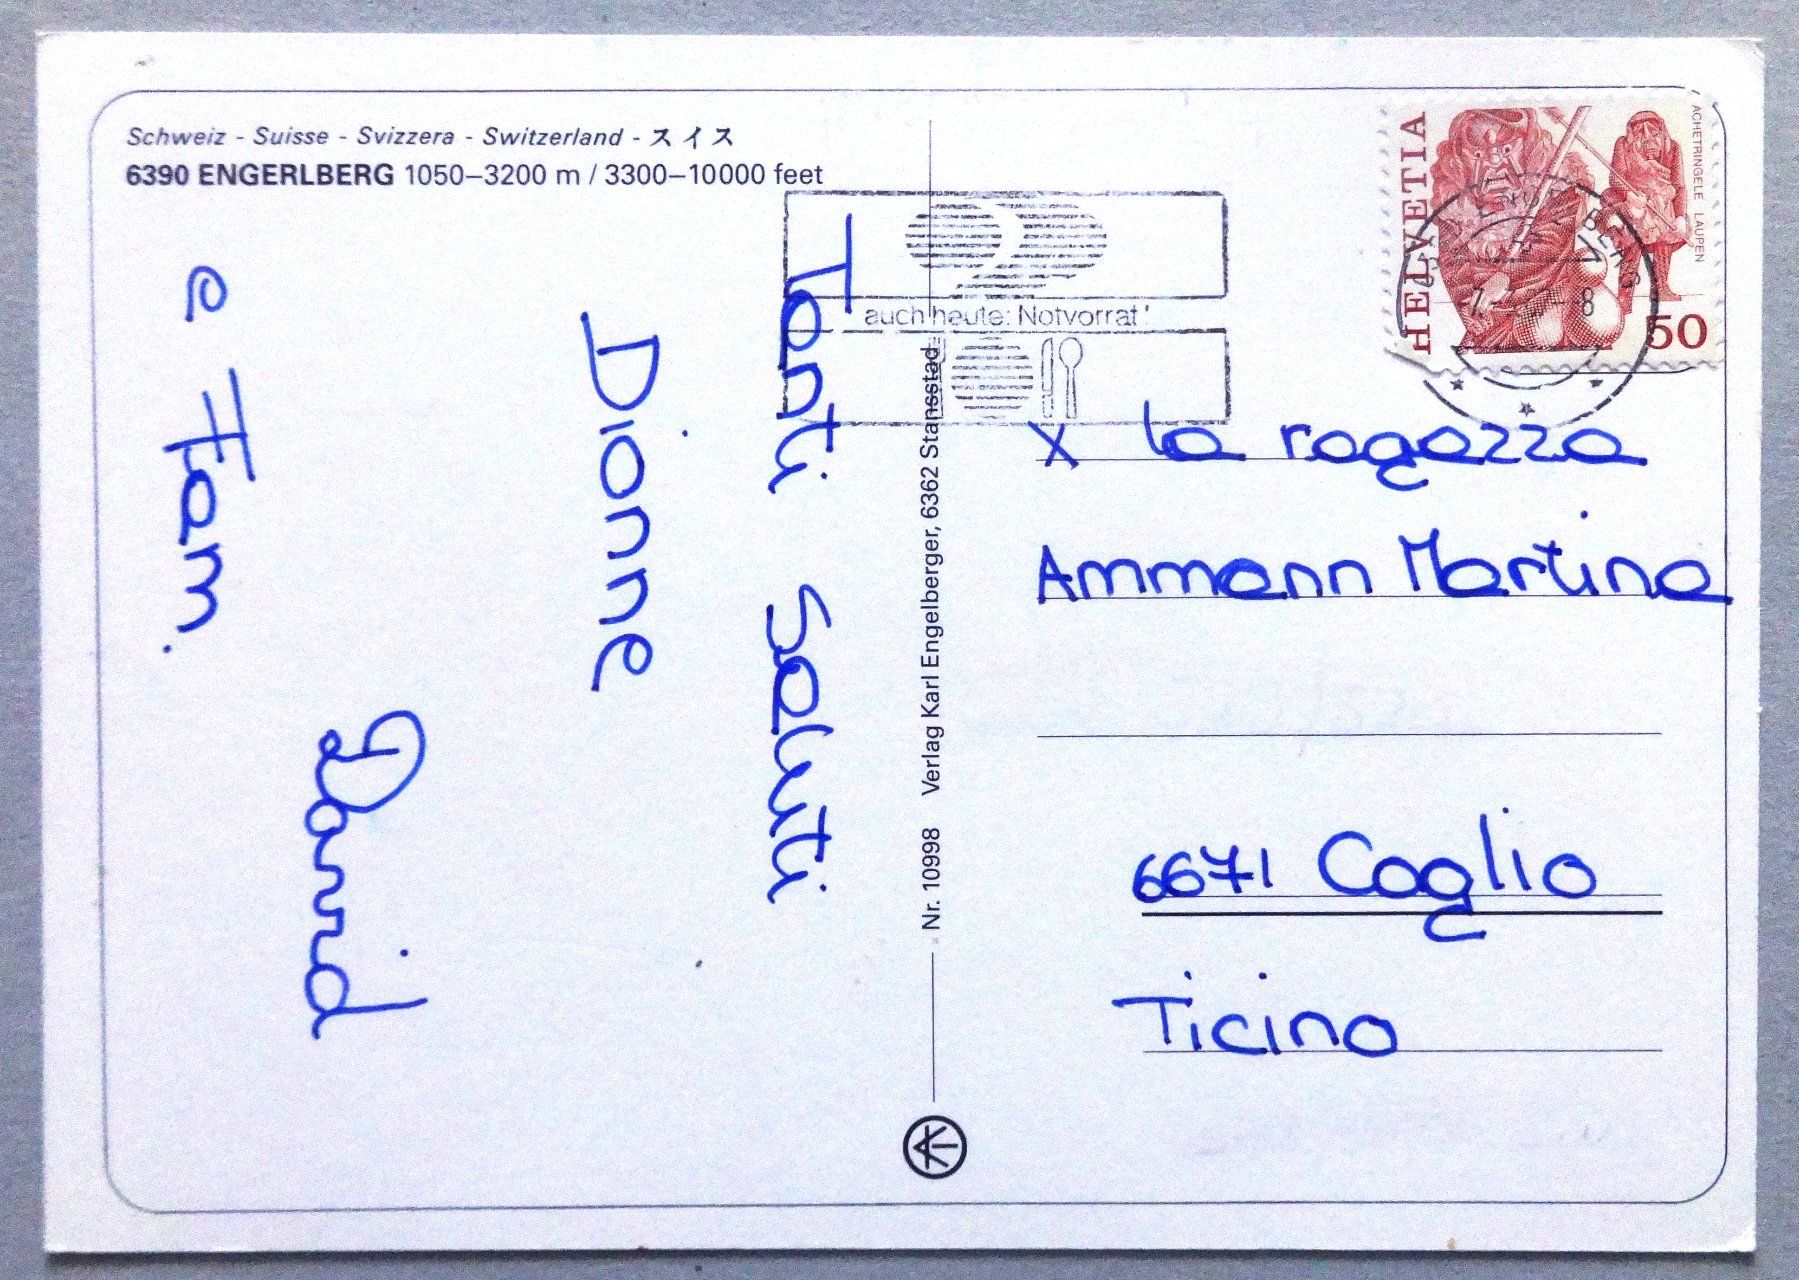 Schweiz - Suisse - Svizzera - Switzerland - スイス
6390 ENGERLBERG 1050–3200 m / 3300–10000 feet
Tanti Saluti
Dionne
David
e Fam.
Nr. 10998 Verlag Karl Engelberger, 6362 Stansstad
auch heute: Notvorrat
HELVETIA
ACHETRINGELE LAUPEN
50
X la ragazza
Ammann Martina
6671 Coglio
Ticino